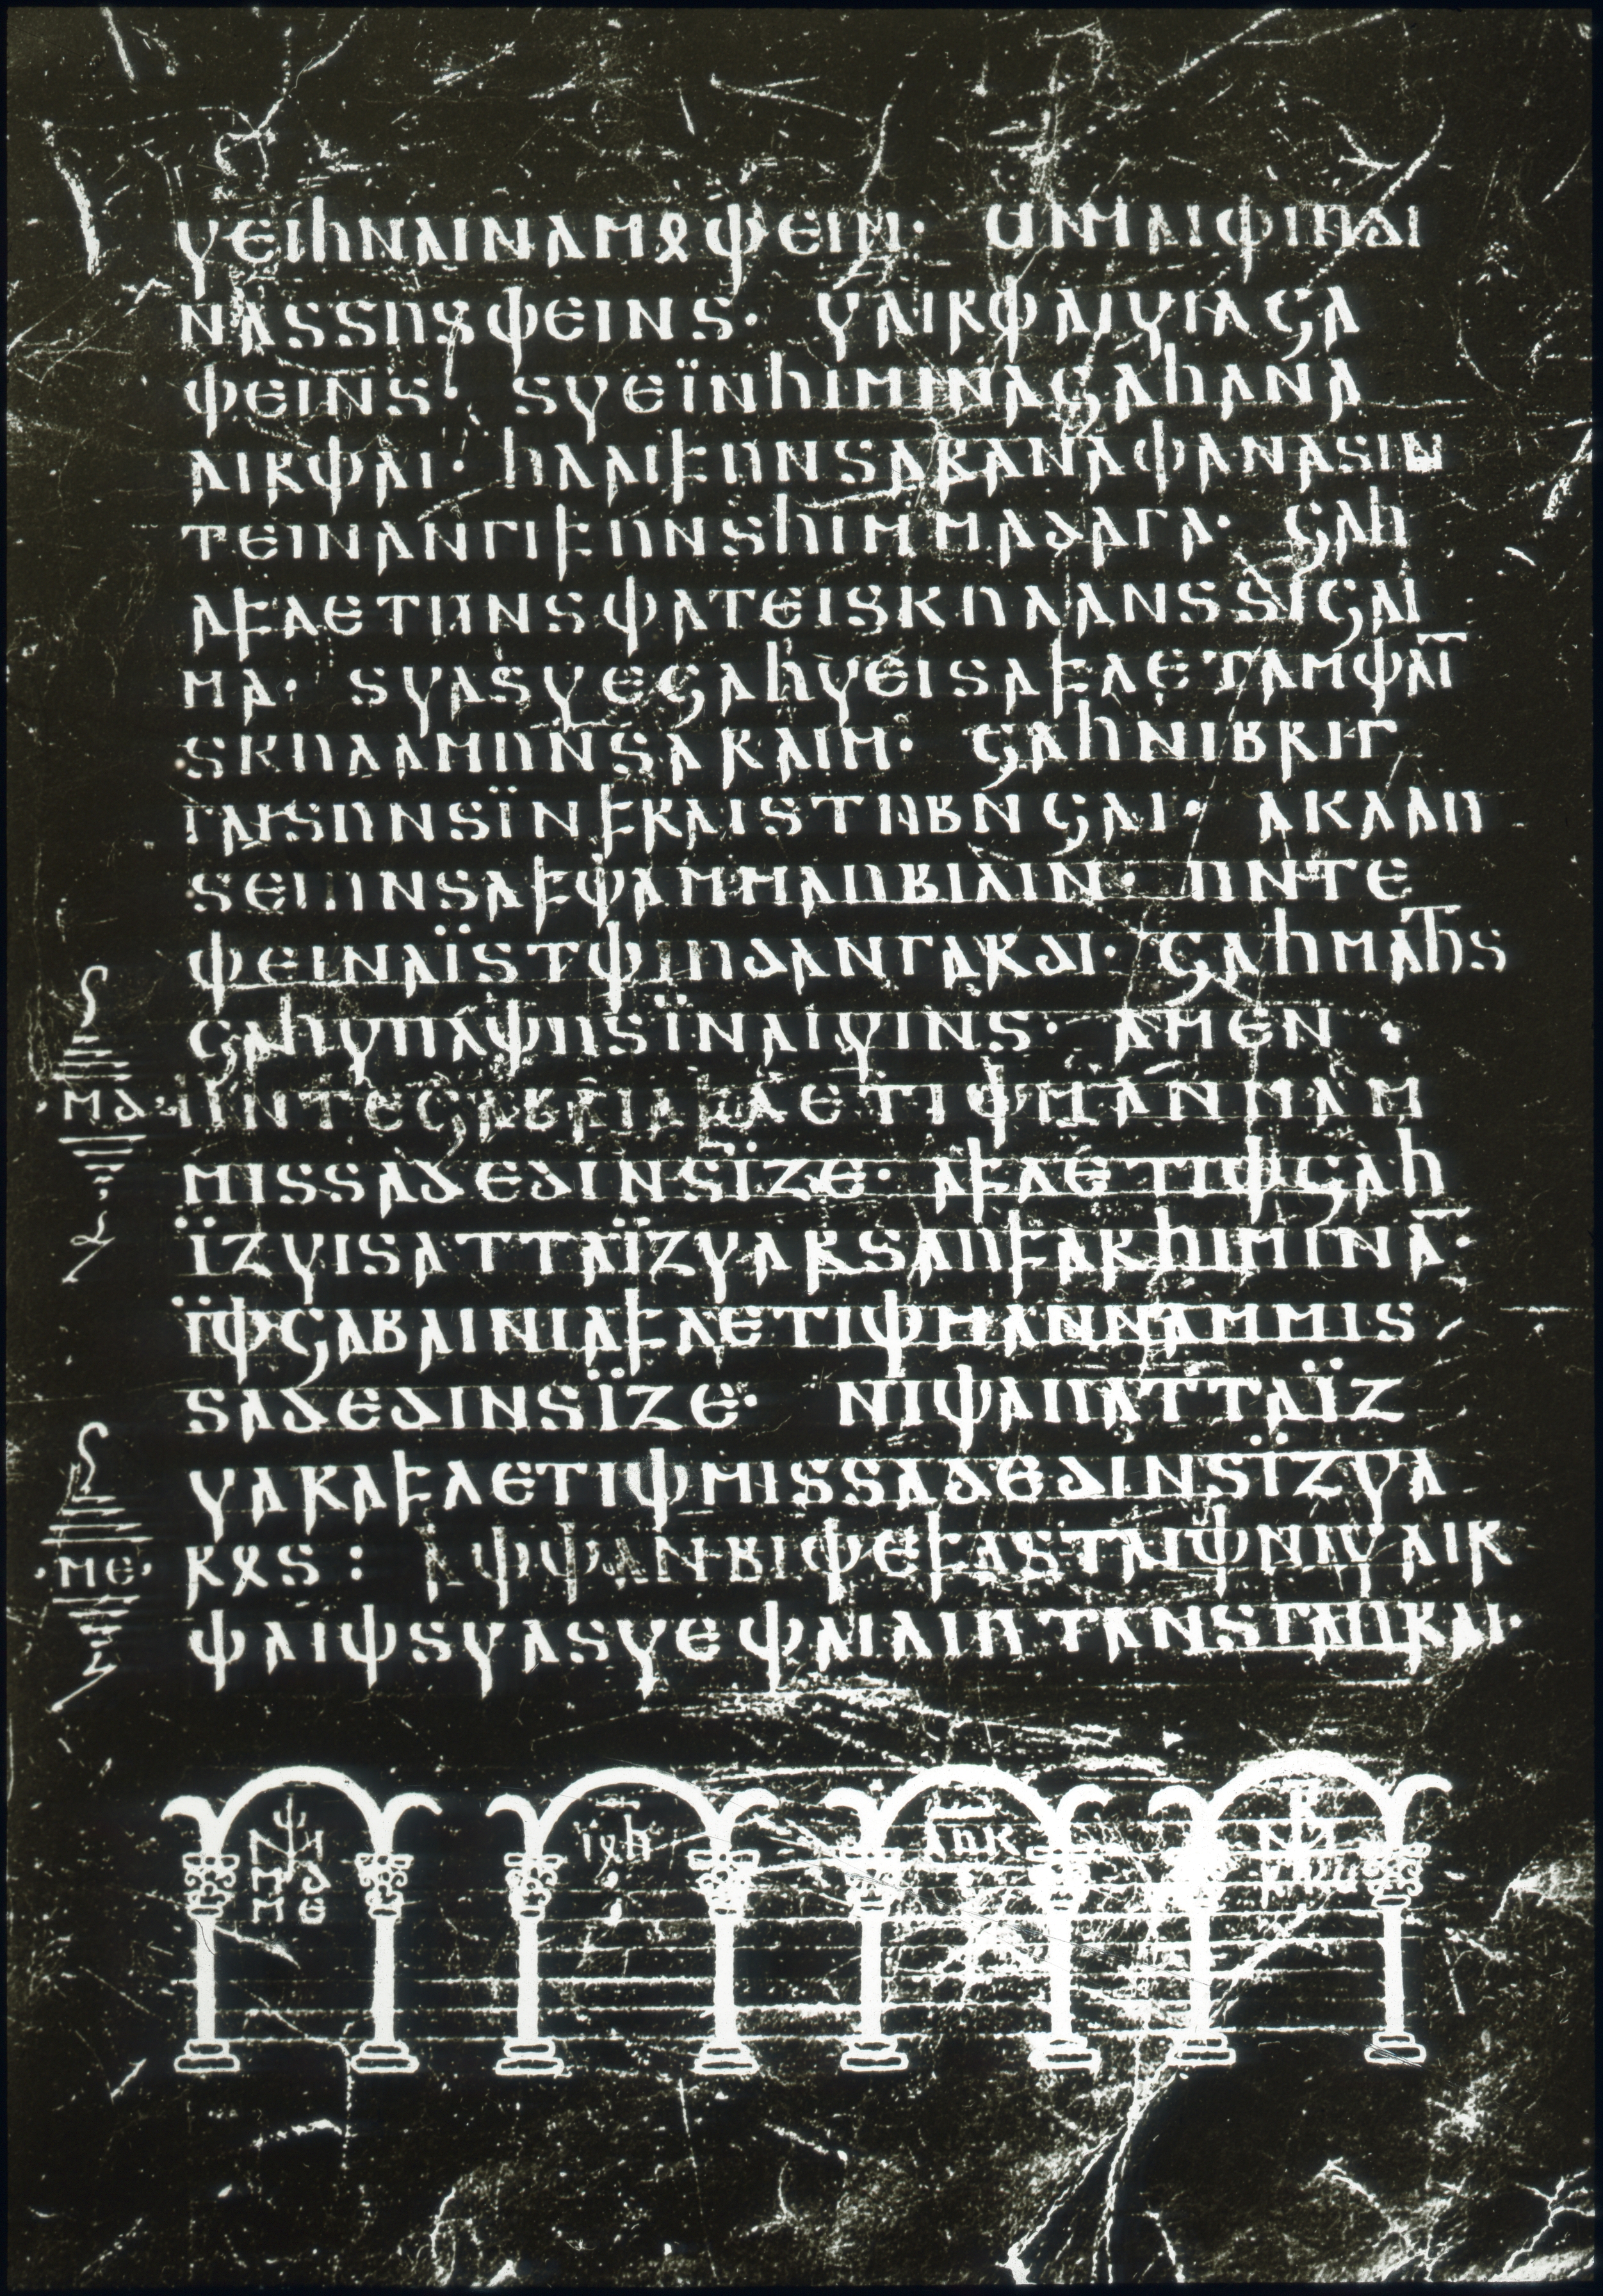 𐍅𐌴𐌹𐌷𐌽𐌰𐌹𐌽𐌰𐌼𐍉𐌸𐌴𐌹𐌽· 𐌵𐌹𐌼𐌰𐌹𐌸𐌹𐌿𐌳𐌹
𐌽𐌰𐍃𐍃𐌿𐍃𐌸𐌴𐌹𐌽𐍃· 𐍅𐌰𐌹𐍂𐌸𐌰𐌹𐍅𐌹𐌻𐌾𐌰
𐌸𐌴𐌹𐌽𐍃· 𐍃𐍅𐌴𐌹̈𐌽𐌷𐌹𐌼𐌹𐌽𐌰𐌾𐌰𐌷𐌰𐌽𐌰
𐌰𐌹𐍂𐌸𐌰𐌹· 𐌷𐌻𐌰𐌹𐍆𐌿𐌽𐍃𐌰𐍂𐌰𐌽𐌰𐌸𐌰𐌽𐌰𐍃𐌹𐌽
𐍄𐌴𐌹𐌽𐌰𐌽𐌲𐌹𐍆𐌿𐌽𐍃𐌷𐌹𐌼𐌼𐌰𐌳𐌰𐌲𐌰· 𐌾𐌰𐌷
𐌰𐍆𐌻𐌴𐍄𐌿𐌽𐍃𐌸𐌰𐍄𐌴𐌹𐍃𐌺𐌿𐌻𐌰𐌽𐍃𐍃𐌹𐌾𐌰𐌹
𐌼𐌰· 𐍃𐍅𐌰𐍃𐍅𐌴𐌾𐌰𐌷𐍅𐌴𐌹𐍃𐌰𐍆𐌻𐌴𐍄𐌰𐌼𐌸𐌰𐌹̅
𐍃𐌺𐌿𐌻𐌰𐌼𐌿𐌽𐍃𐌰𐍂𐌰𐌹𐌼· 𐌾𐌰𐌷𐌽𐌹𐌱𐍂𐌹𐌲
𐌲𐌰𐌹𐍃𐌿𐌽𐍃𐌹̈𐌽𐍆𐍂𐌰𐌹𐍃𐍄𐌿𐌱𐌽𐌾𐌰𐌹· 𐌰𐌺𐌻𐌰𐌿
𐍃𐌴𐌹𐌿𐌽𐍃𐌰𐍆𐌸𐌰𐌼𐌼𐌰𐌿𐌱𐌹𐌻𐌹𐌽· 𐌿𐌽𐍄𐌴
𐌸𐌴𐌹𐌽𐌰𐌹̈𐍃𐍄𐌸𐌹𐌿𐌳𐌰𐌽𐌲𐌰𐍂𐌳𐌹· 𐌾𐌰𐌷𐌼𐌰𐌷𐍄𐍃
𐌾𐌰𐌷𐍅𐌿𐌻𐌸𐌿𐍃𐌹̈𐌽𐌰𐌹𐍅𐌹𐌽𐍃· 𐌰𐌼𐌴𐌽·
·𐌼𐌳· 𐌿𐌽𐍄𐌴𐌾𐌰𐌱𐌰𐌹𐌰𐍆𐌻𐌴𐍄𐌹𐌸𐌼𐌰𐌽𐌽𐌰𐌼
𐌼𐌹𐍃𐍃𐌰𐌳𐌴𐌳𐌹𐌽𐍃𐌹̈𐌶𐌴· 𐌰𐍆𐌻𐌴𐍄𐌹𐌸𐌾𐌰𐌷
𐌹̈𐌶𐍅𐌹𐍃𐌰𐍄𐍄𐌰𐌹̈𐌶𐍅𐌰𐍂𐍃𐌰𐌿𐍆𐌰𐍂𐌷𐌹𐌼𐌹𐌽𐌰̅·
𐌹̈𐌸𐌾𐌰𐌱𐌰𐌹𐌽𐌹𐌰𐍆𐌻𐌴𐍄𐌹𐌸𐌼𐌰𐌽𐌽𐌰𐌼𐌼𐌹𐍃
𐍃𐌰𐌳𐌴𐌳𐌹𐌽𐍃𐌹̈𐌶𐌴· 𐌽𐌹𐌸𐌰𐌿𐌰𐍄𐍄𐌰𐌹̈𐌶
𐍅𐌰𐍂𐌰𐍆𐌻𐌴𐍄𐌹𐌸𐌼𐌹𐍃𐍃𐌰𐌳𐌴𐌳𐌹𐌽𐍃𐌹̈𐌶𐍅𐌰
·𐌼𐌴· 𐍂𐍉𐍃: 𐌰𐌸𐌸𐌰𐌽𐌱𐌹𐌸𐌴𐍆𐌰𐍃𐍄𐌰𐌹𐌸𐌽𐌹𐍅𐌰𐌹𐍂
𐌸𐌰𐌹𐌸𐍃𐍅𐌰𐍃𐍅𐌴𐌸𐌰𐌹𐌻𐌹𐌿𐍄𐌰𐌽𐍃𐌲𐌰𐌿𐍂𐌰𐌹·
𐌼𐌳
𐌼𐌴
𐌹̈𐍉𐌷
𐌻𐌿𐌺